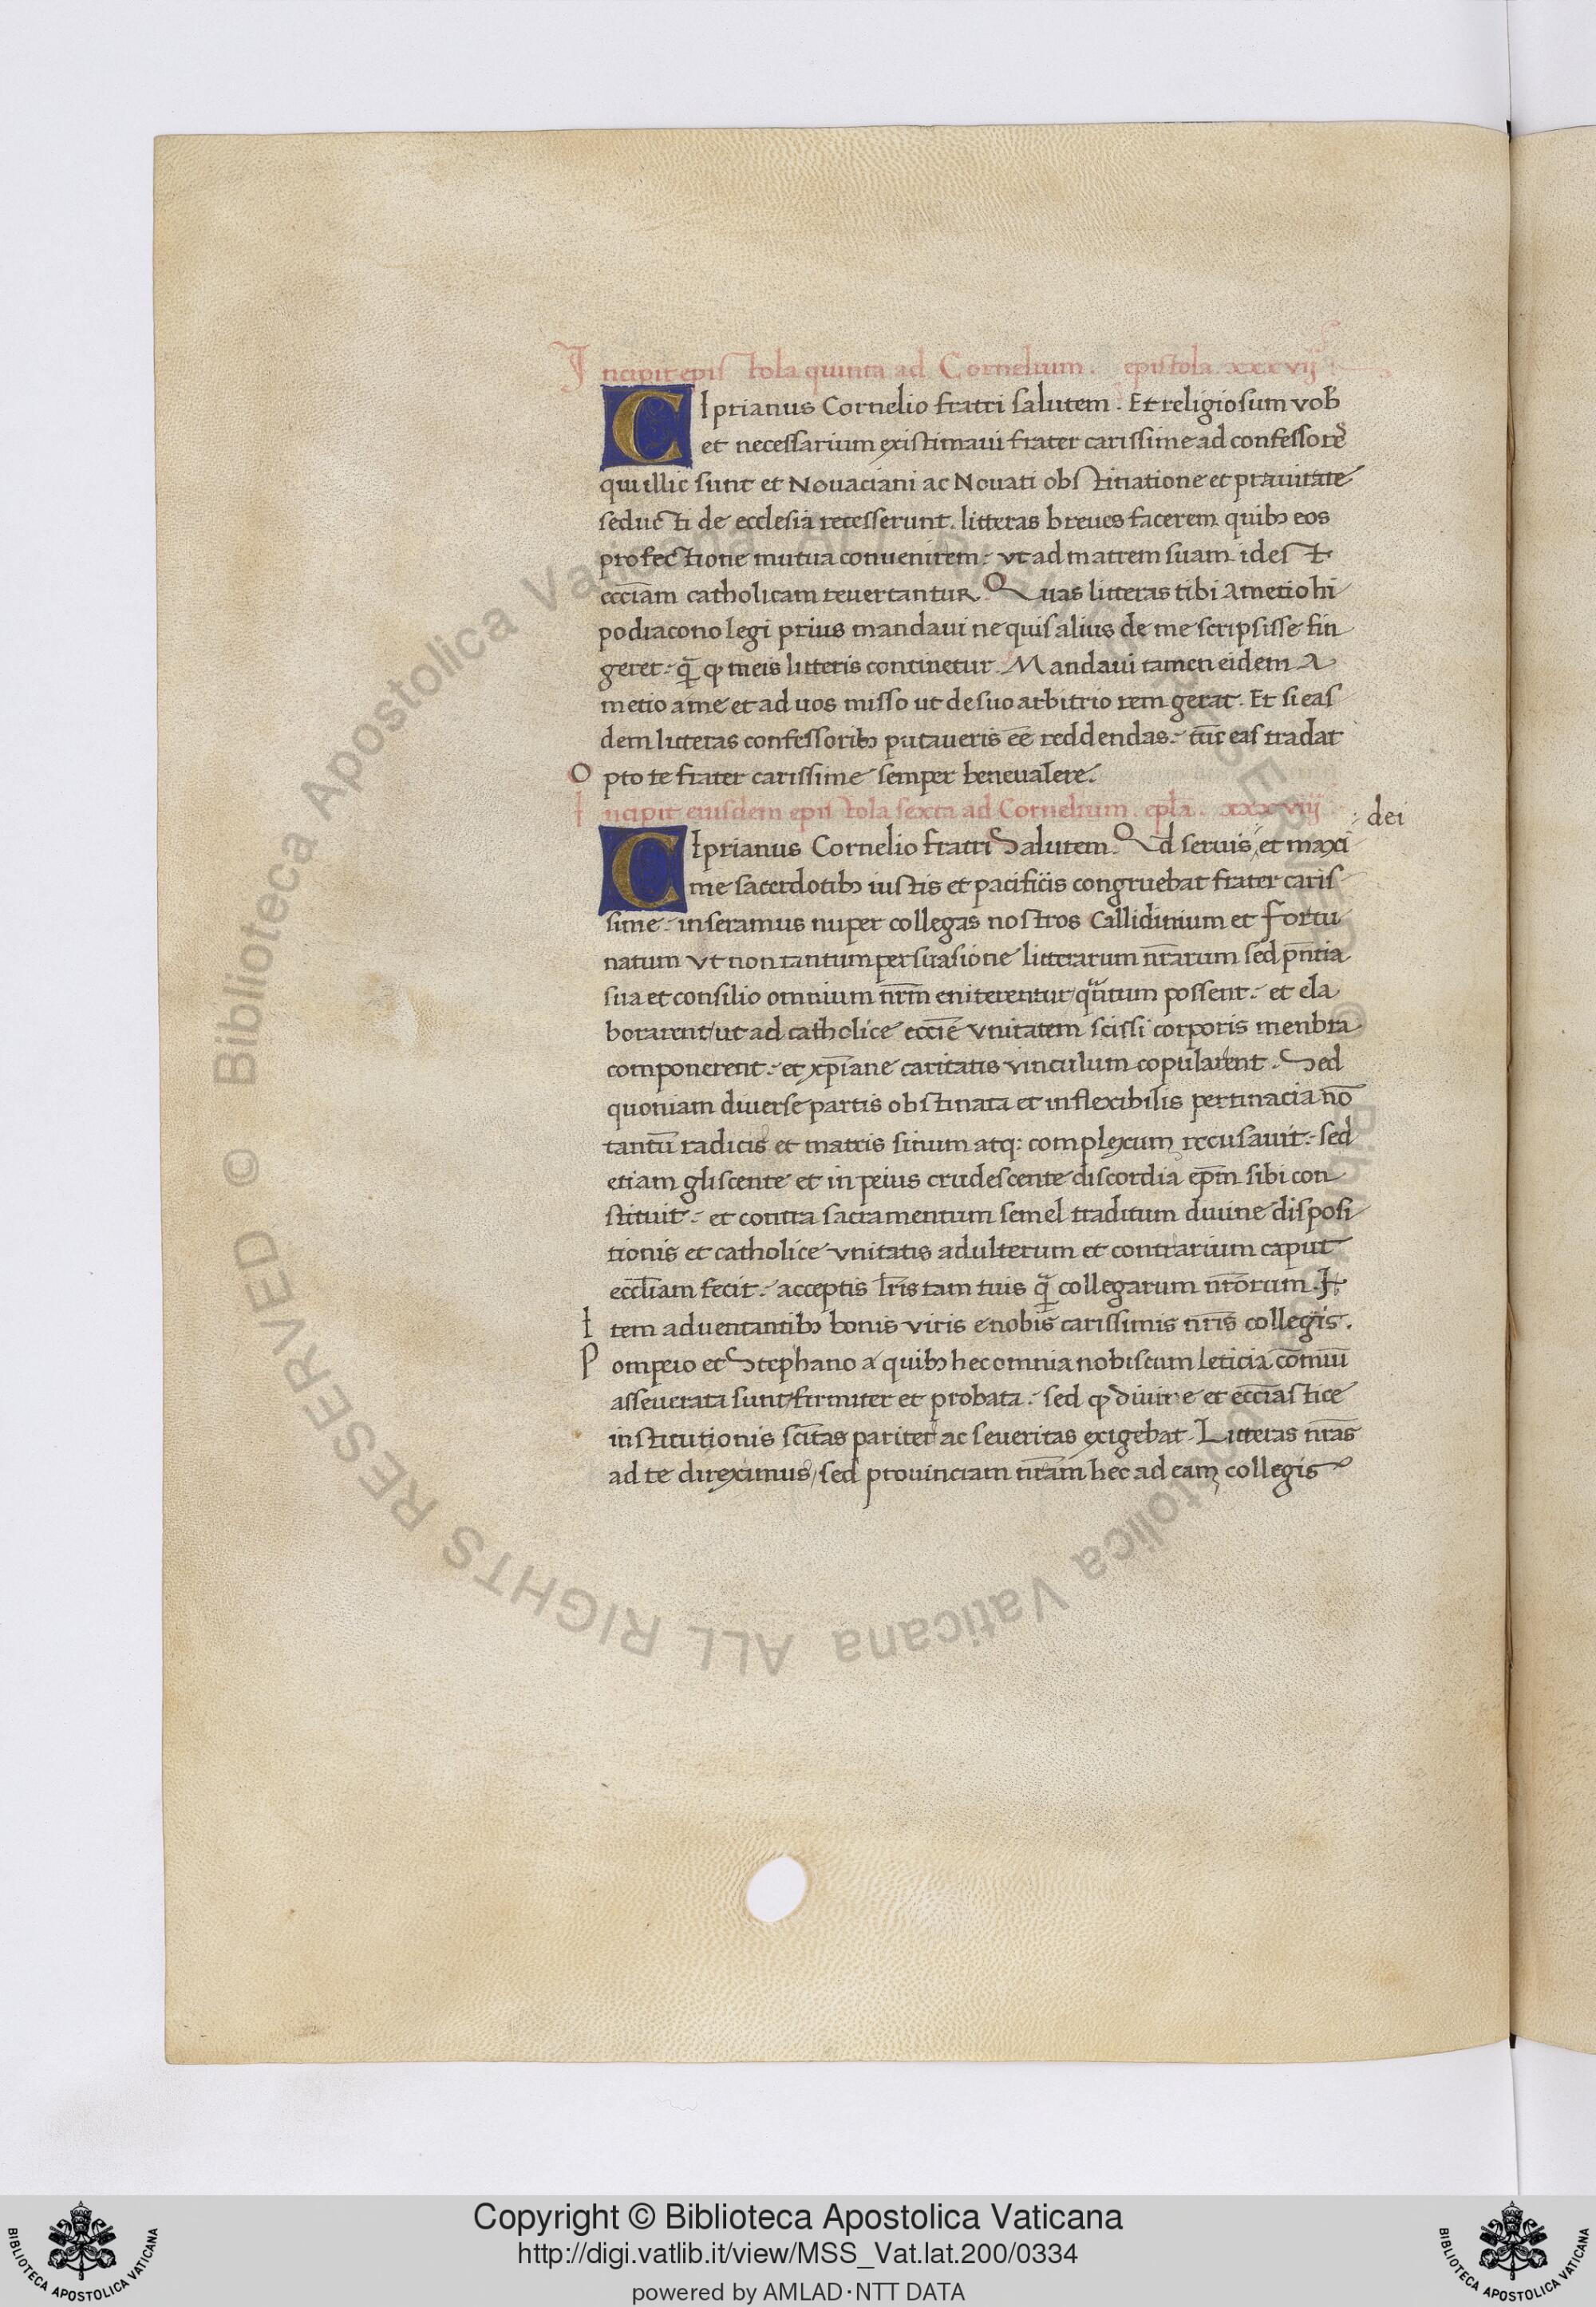 Incipit epistola quinta ad Cornelium. epistola. xxxvij
CIprianus Cornelio fratri salutem. Et religiosum vob̄
et necessarium existimaui frater carissime ad confessorē
qui illic sunt et Nouaciani ac Nouati obstinatione et prauitate
seducti de ecclesia recesserunt. litteras breues facerem quibꝫ eos
profectione mutua conuenirem. vt ad matrem suam idest
ecc̄iam catholicam reuertantur. Quas litteras tibi Ametio hi
podiacono legi prius mandaui ne quis alius de me scripsisse fin
geret. qᷓ̄ ꝙ meis litteris continetur. Mandaui tamen eidem A
metio a me et ad uos misso ut de suo arbitrio rem gerat. Et si eas
dem litteras confessoribꝫ putaueris eē reddendas. tūc eas tradat
Opto te frater carissime semper bene ualere.
Incipit eiusdem epistola sexta ad Cornelium. ep̄la. xxxviij
dei
CIprianus Cornelio fratri Salutem. Qd seruis et maxi
me sacerdotibꝫ iustis et pacificis congruebat frater caris
sime. inseramus nuper collegas nostros Callidinium et Fortu
natum vt non tantum persuasione litterarum nr̄arum sed pn̄tia
sua et consilio omnium nr̄m eniterentur/ qᷓntum possent. et ela
borarent/ ut ad catholice ecc̄ie vnitatem scissi corporis menbra
componerent. et xp̄iane caritatis vinculum copularent. Sed
quoniam diuerse partis obstinata et inflexibilis pertinacia nō
tantū radicis et matris sinum atq: complexum recusauit. sed
etiam gliscente et in peius crudescente discordia ep̄m sibi con
stituit. et contra sacramentum semel traditum diuine disposi
tionis et catholice vnitatis adulterum et contrarium caput
eccl̄iam fecit. acceptis l̄ris tam tuis qᷓ̄ collegarum nr̄orum. I
Item aduentantibꝫ bonis viris e nobis carissimis nr̄is collegijs.
Pompeio et Stephano a quibꝫ hec omnia nobiscum leticia cōmuni
asseuerata sunt/ firmiter et probata. sed ꝙ diuine et ecc̄iastice
institutionis sc̄itas pariter ac seueritas exigebat. Litteras nr̄as
ad te direximus/ sed prouinciam nr̄am hec ad eam collegis
Copyright © Biblioteca Apostolica Vaticana
http://digi.vatlib.it/view/MSS_Vat.lat.200/0334
powered by AMLAD·NTT DATA